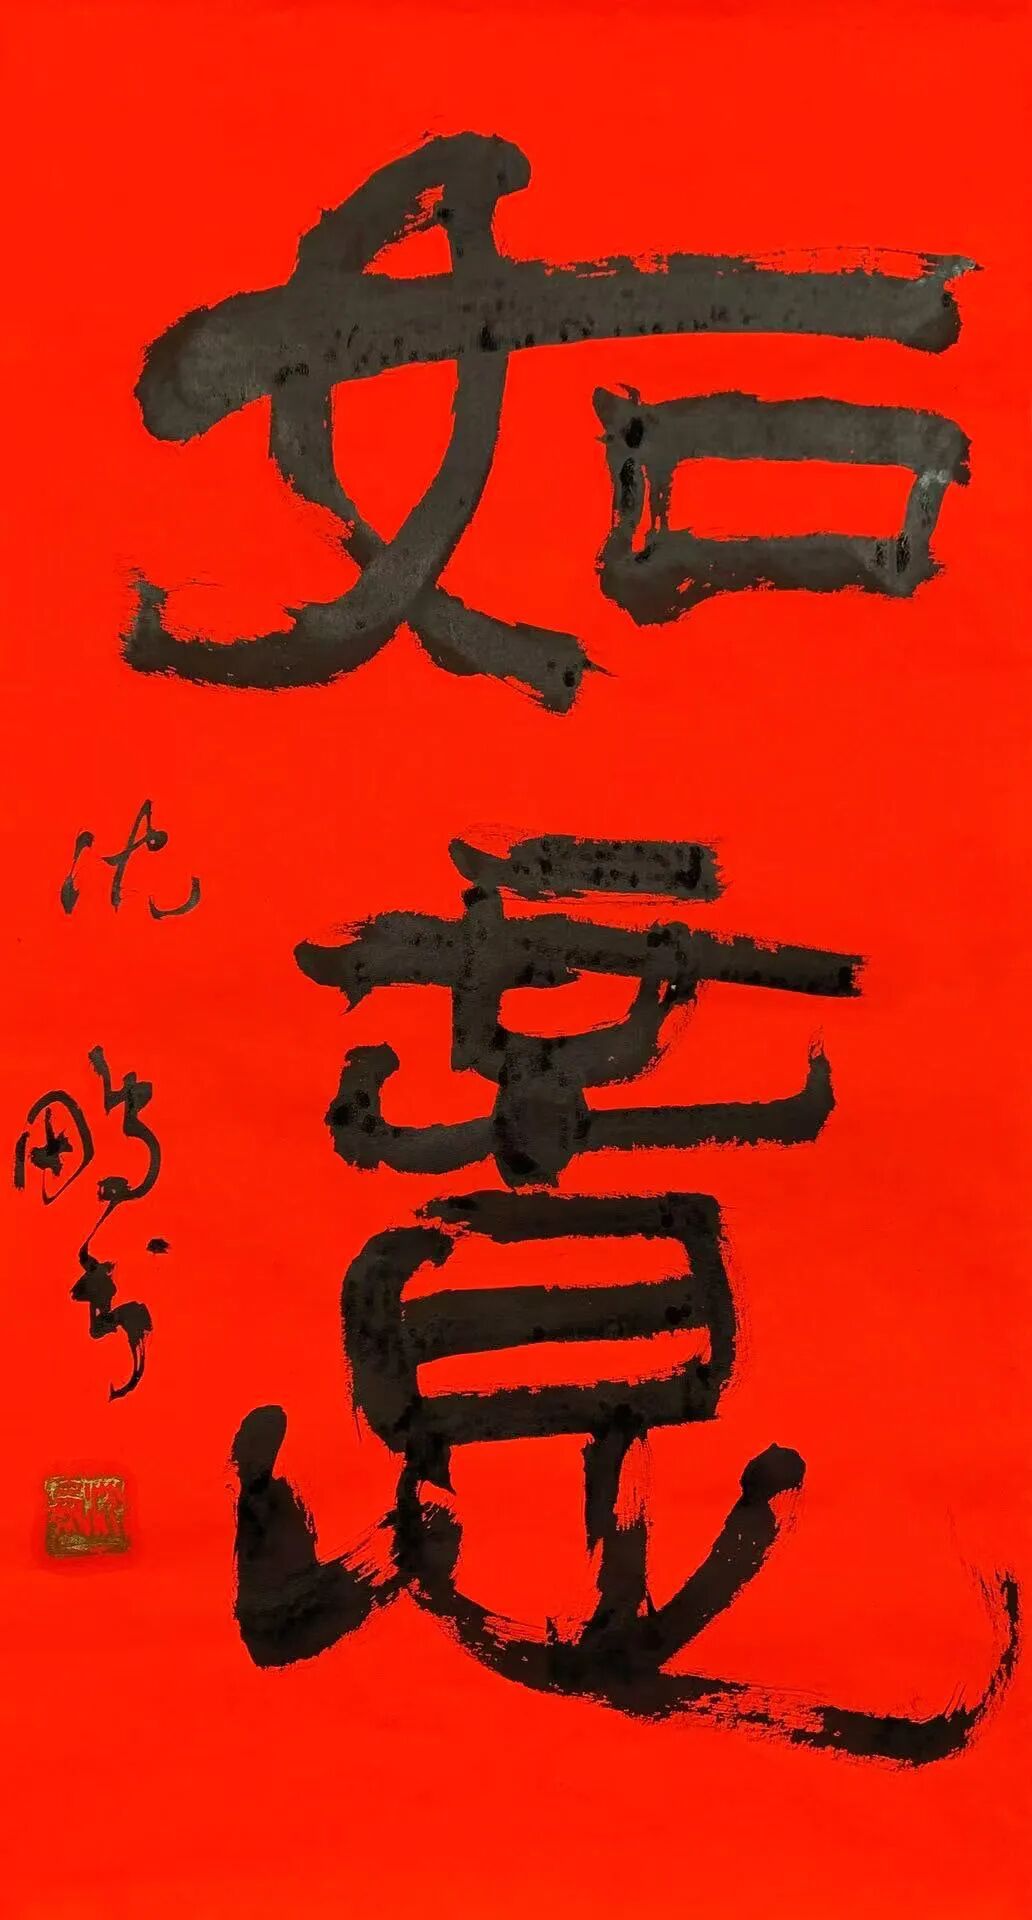 如意
沈鹏书